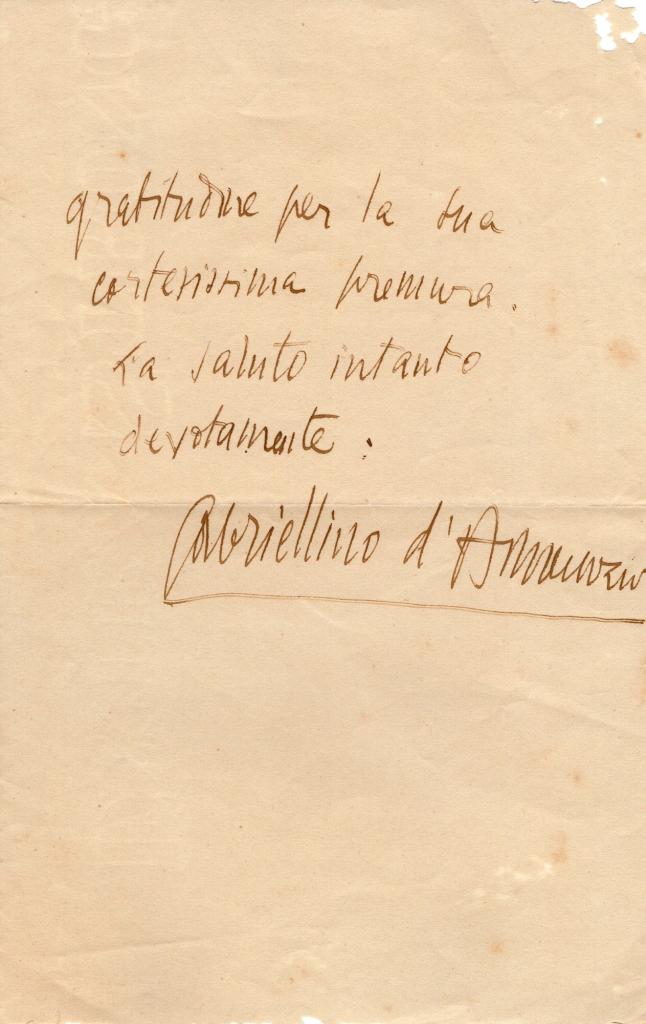 gratitudine per la sua
cortesissima premura.
La saluto intanto
devotamente:
Gabriellino d'Annunzio